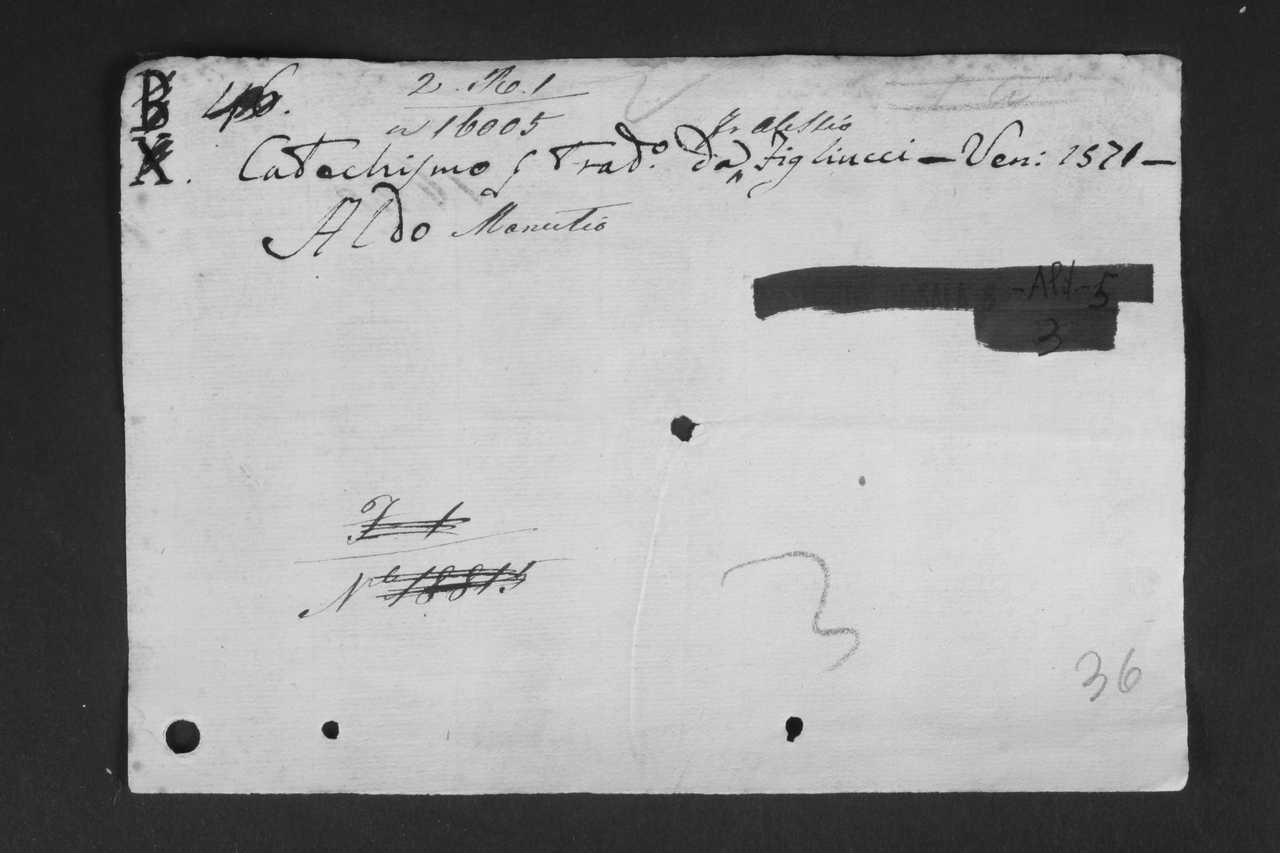 B 46. 2. Ro. 1
X. nº 16005
Fr Alessio
Catechismo, Trad.º da Figliucci — Ven: 1571 —
Aldo Manutio
SALA 8 - Ald - 5
3
Z 1
Nº 18815
3
36